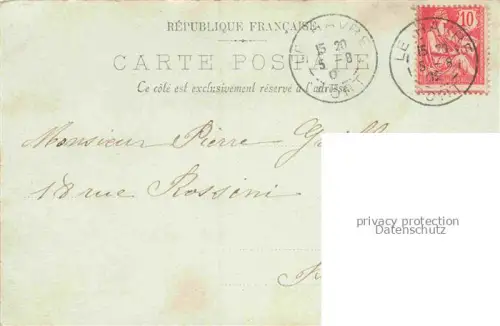 RÉPUBLIQUE FRANÇAISE
CARTE POSTALE
Ce côté est exclusivement réservé à l'adresse.
LE HAVRE
15 20
5 - 8
PORT
LE HAVRE
15 20
5 - 8
PORT
10
Monsieur Pierre
18 rue Rossini
privacy protection
Datenschutz